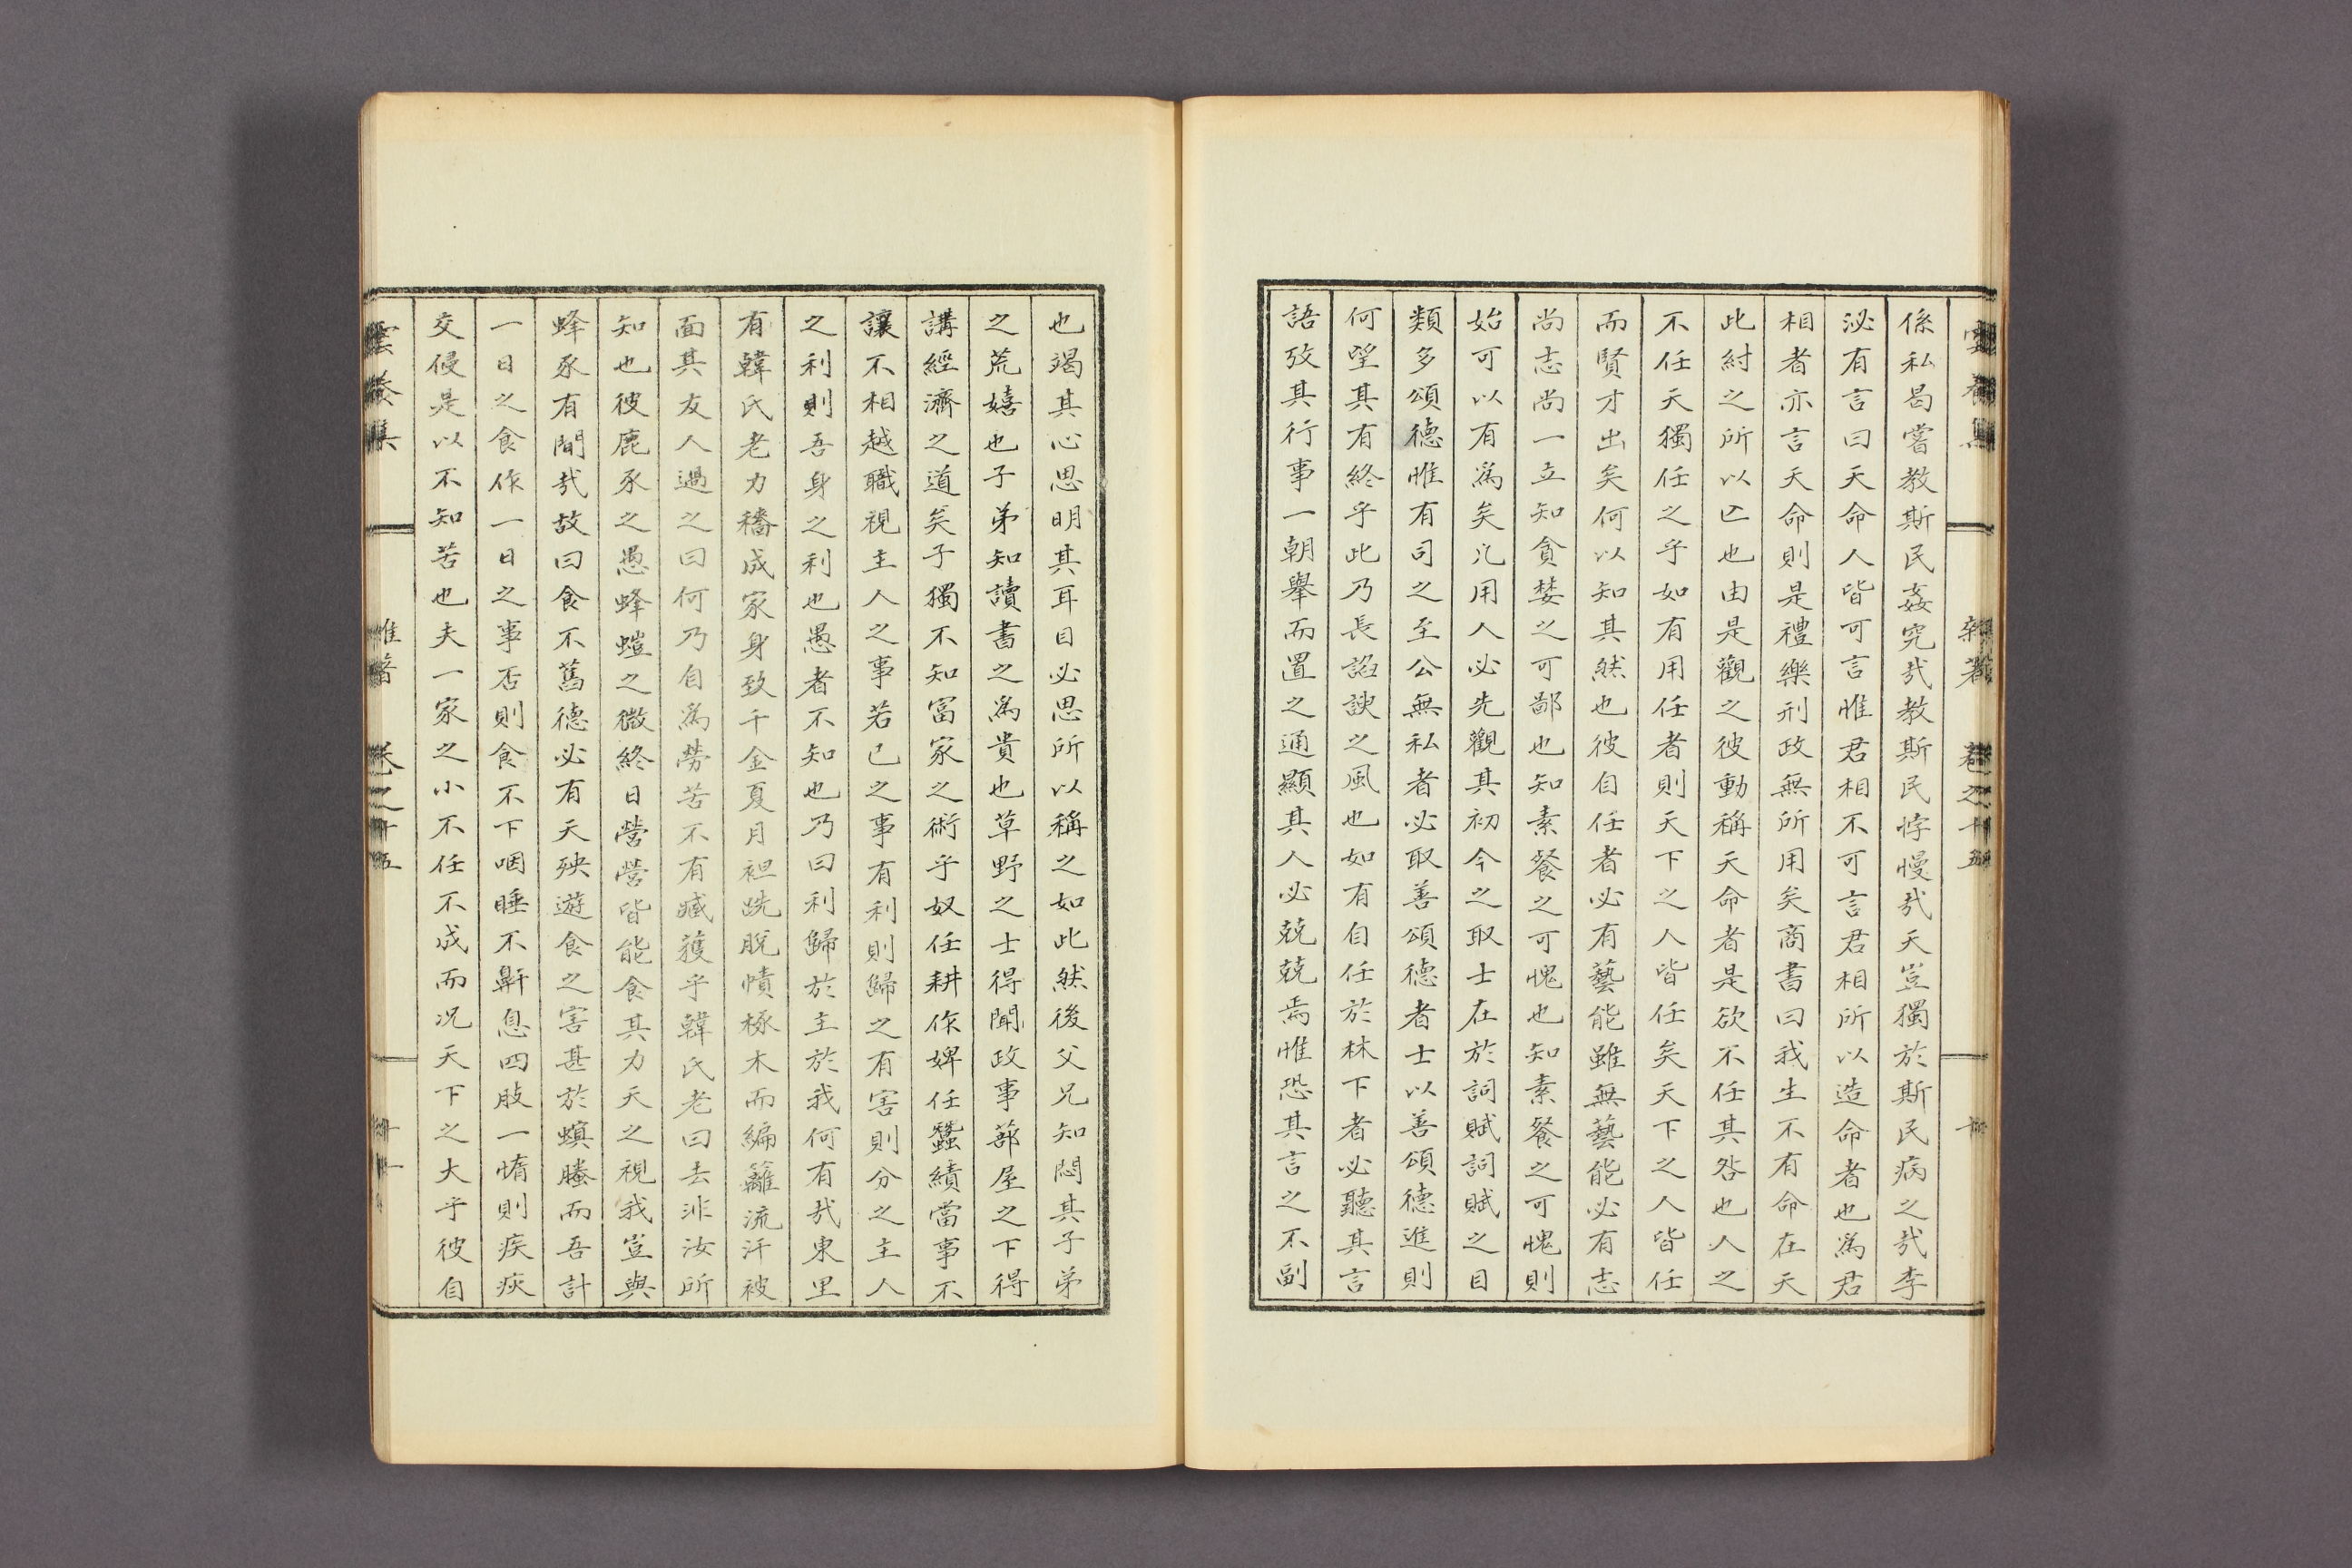 雲養集 雜著 卷之十五 十
係私曷嘗教斯民姦究哉教斯民悖慢哉天豈獨於斯民病之哉李
泌有言曰天命人皆可言惟君相不可言君相所以造命者也爲君
相者亦言天命則是禮樂刑政無所用矣商書曰我生不有命在天
此紂之所以亡也由是觀之彼動稱天命者是欲不任其咎也人之
不任天獨任之乎如有用任者則天下之人皆任矣天下之人皆任
而賢才出矣何以知其然也彼自任者必有藝能雖無藝能必有志
尚志尚一立知貪婪之可鄙也知素餐之可愧也知素餐之可愧則
始可以有爲矣凡用人必先觀其初今之取士在於詞賦詞賦之目
類多頌德惟有司之至公無私者必取善頌德者士以善頌德進則
何望其有終乎此乃長諂諛之風也如有自任於林下者必聽其言
語攷其行事一朝擧而置之通顯其人必兢兢焉惟恐其言之不副
也竭其心思明其耳目必思所以稱之如此然後父兄知悶其子弟
之荒嬉也子弟知讀書之爲貴也草野之士得聞政事蔀屋之下得
講經濟之道矣子獨不知富家之術乎奴任耕作婢任蠶績當事不
讓不相越職視主人之事若己之事有利則歸之有害則分之主人
之利則吾身之利也愚者不知也乃曰利歸於主於我何有哉東里
有韓氏老力穡成家身致千金夏月袒跣脫幘椓木而編籬流汗被
面其友人過之曰何乃自爲勞苦不有臧獲乎韓氏老曰去非汝所
知也彼鹿豕之愚蜂螘之微終日營營皆能食其力天之視我豈與
蜂豕有間哉故曰食不舊德必有天殃遊食之害甚於螟螣而吾計
一日之食作一日之事否則食不下咽睡不鼾息四肢一惰則疾疢
交侵是以不知苦也夫一家之小不任不成而况天下之大乎彼自
雲養集 雜著 卷之十五 十一